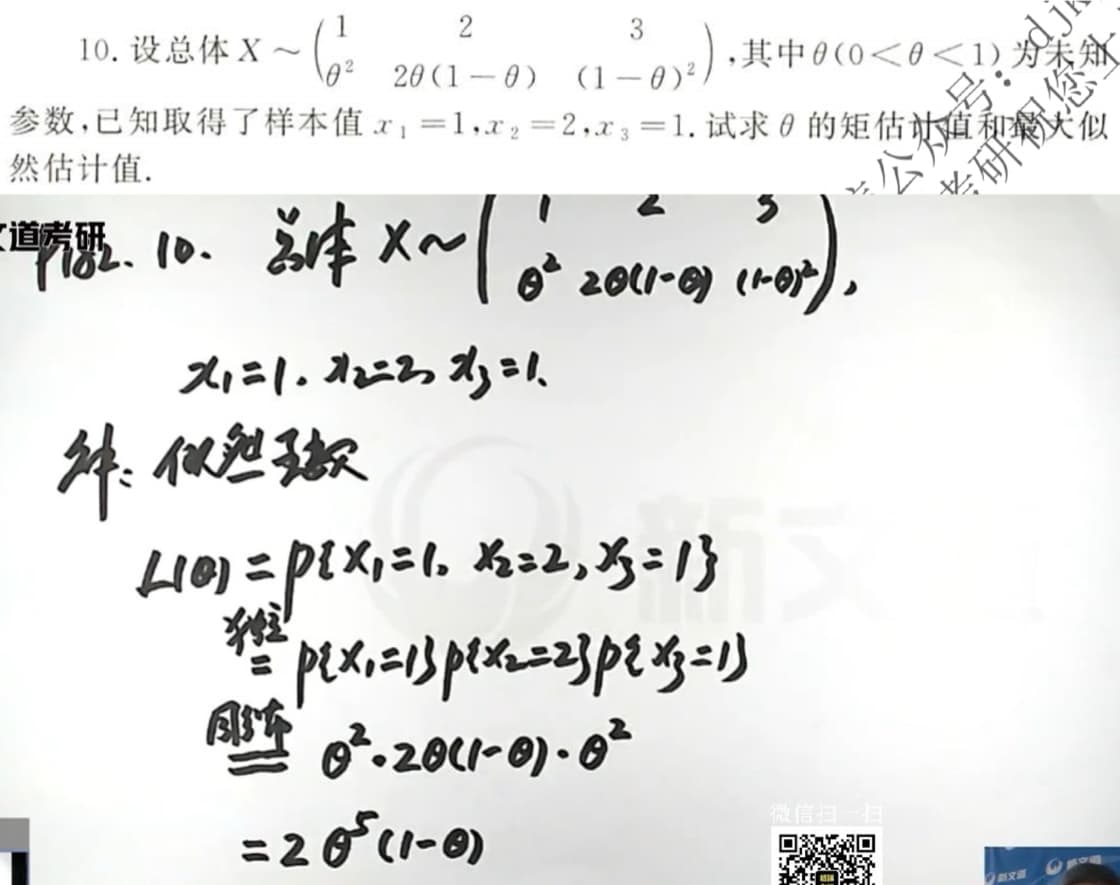 10. 设总体 X ~ ( 1 2 3
θ² 2θ(1-θ) (1-θ)² ), 其中 θ(0<θ<1) 为未知
参数,已知取得了样本值 x₁=1,x₂=2,x₃=1. 试求 θ 的矩估计值和最大似
然估计值.
道考研
P182. 10. 总体 X~( 1 2 3
θ² 2θ(1-θ) (1-θ)² ),
x₁=1. x₂=2, x₃=1.
解: 似然函数
L(θ) = P{X₁=1, X₂=2, X₃=1}
独立
= P{X₁=1}P{X₂=2}P{X₃=1}
同分布
= θ²·2θ(1-θ)·θ²
= 2θ⁵(1-θ)
微信扫一扫
新文道
新文道